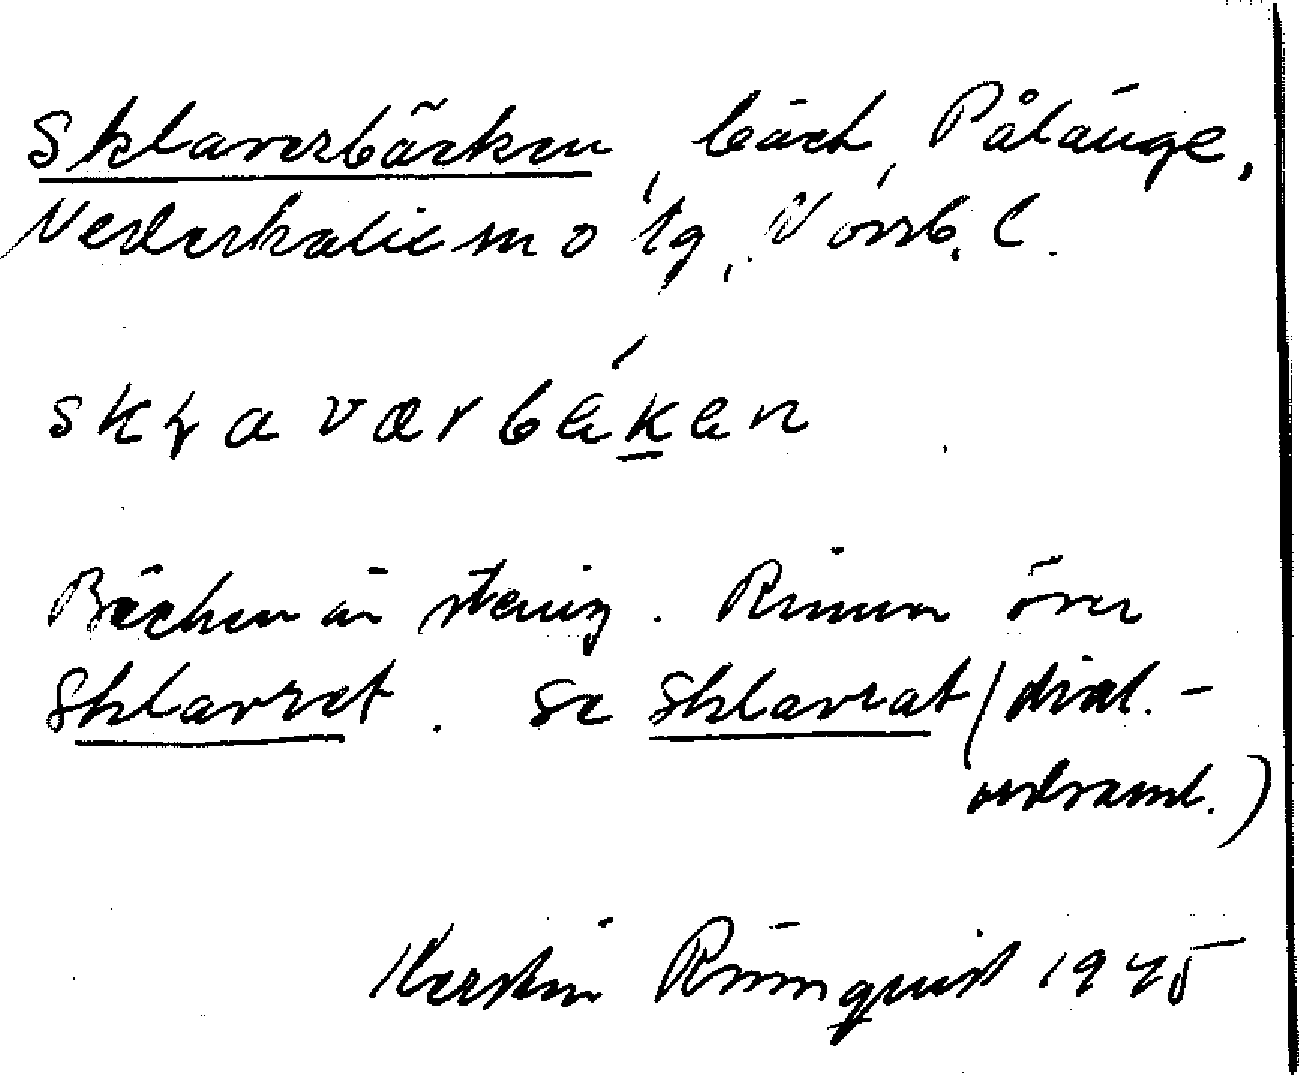 Sklaverbäcken, bäck, Pålänge,
Nederkalix sn o tg, Norrb. l.
skɽaværbäḱen
Bäcken är stenig. Rinner över
Sklavret. Se Sklavrat (dial.-
ordsaml.)
Kerstin Rönnquist 1945